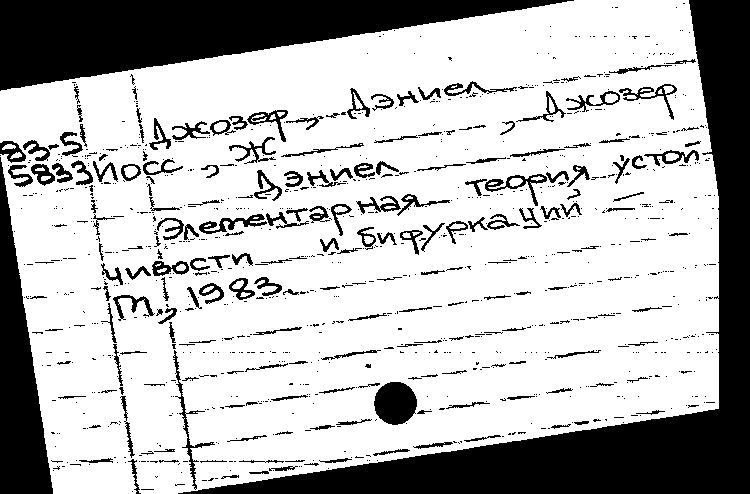 83-5 Джозеф, Дэниел
5833 Йосс, Ж , Джозеф
Дэниел
Элементарная теория устой
чивости и бифуркаций —
М., 1983.